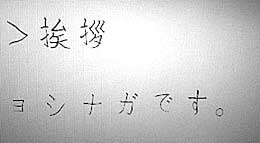 >挨拶
ヨシナガです。